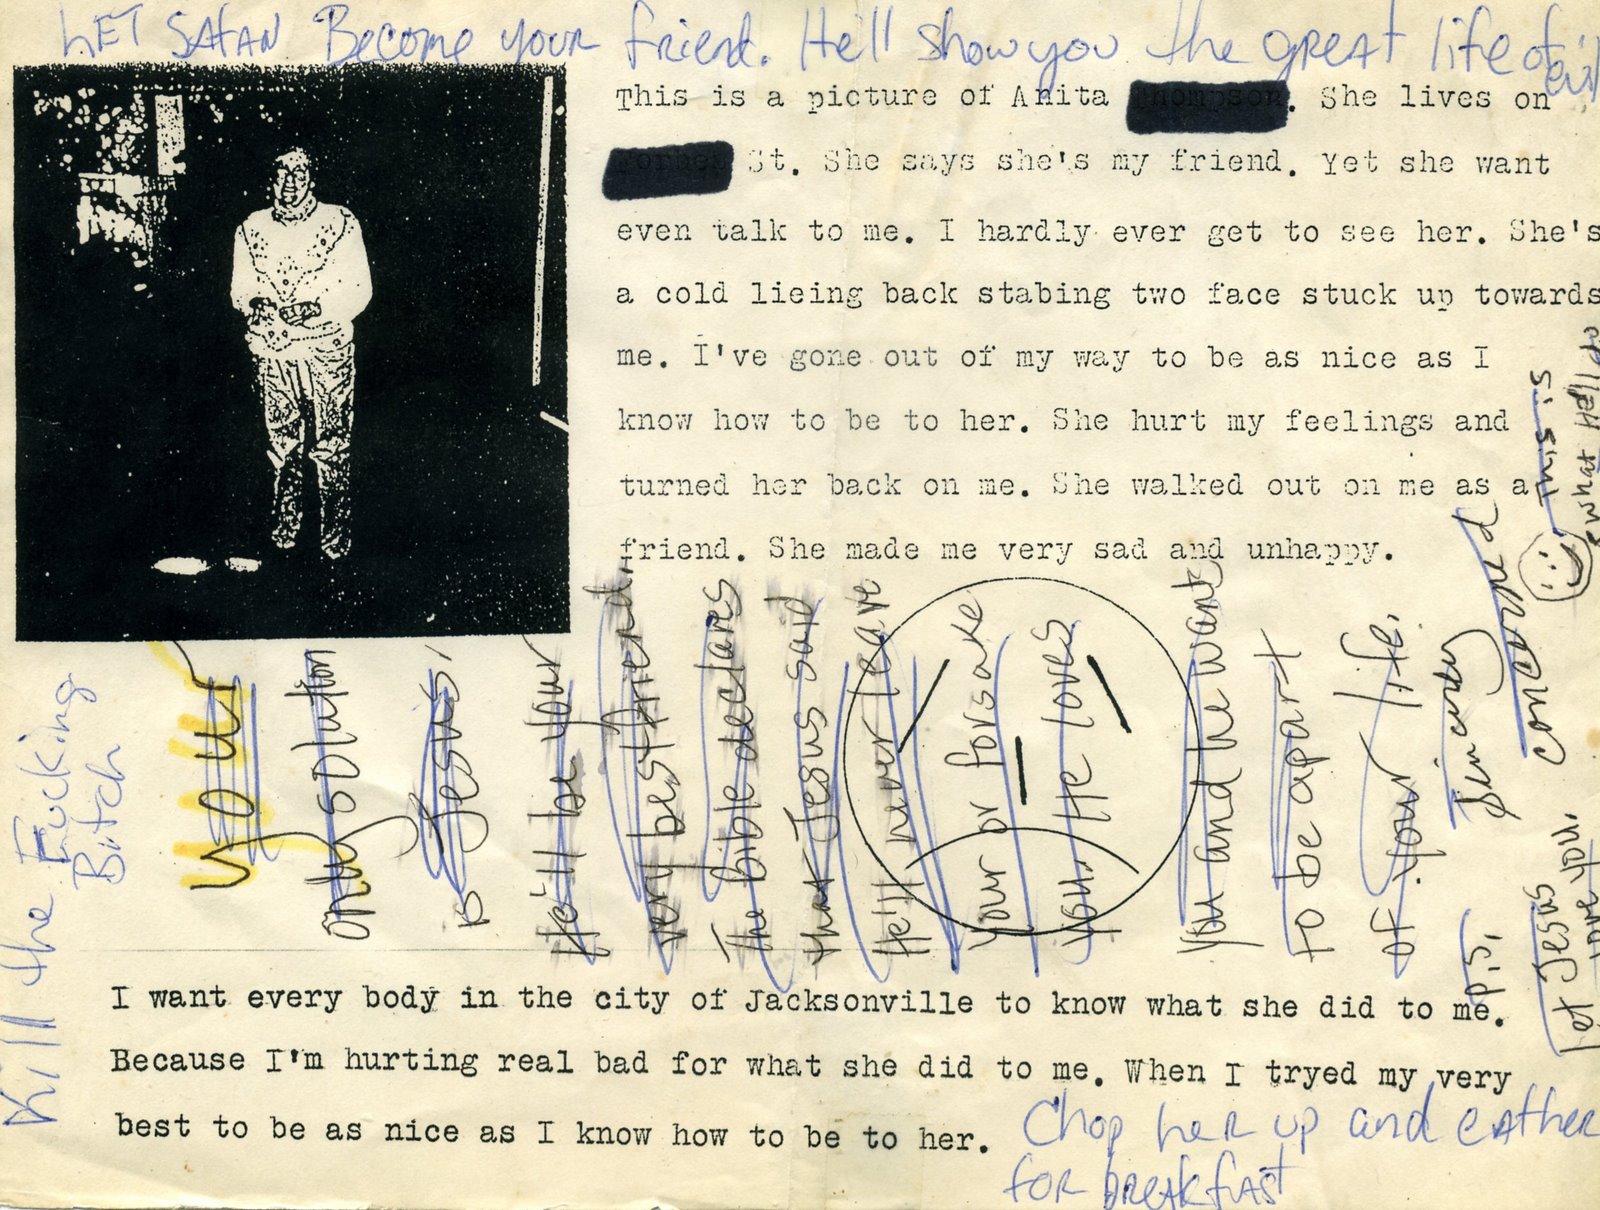 LET SATAN Become your friend. He'll show you the great life of evil
This is a picture of Anita . She lives on
St. She says she's my friend. Yet she want
even talk to me. I hardly ever get to see her. She's
a cold lieing back stabing two face stuck up towards
me. I've gone out of my way to be as nice as I
know how to be to her. She hurt my feelings and
turned her back on me. She walked out on me as a
friend. She made me very sad and unhappy.
Kill the Fucking
Bitch
your
only solution
is Jesus.
He'll be your
very best friend.
The bible declares
that Jesus said
He'll never leave
your or forsake
you. He loves
you and he want
to be apart
of your life.
Sincerely
concerned
P.S.
Let Jesus
love you.
This is
what He'll do
I want every body in the city of Jacksonville to know what she did to me.
Because I'm hurting real bad for what she did to me. When I tryed my very
best to be as nice as I know how to be to her.
Chop her up and eat her
for breakfast